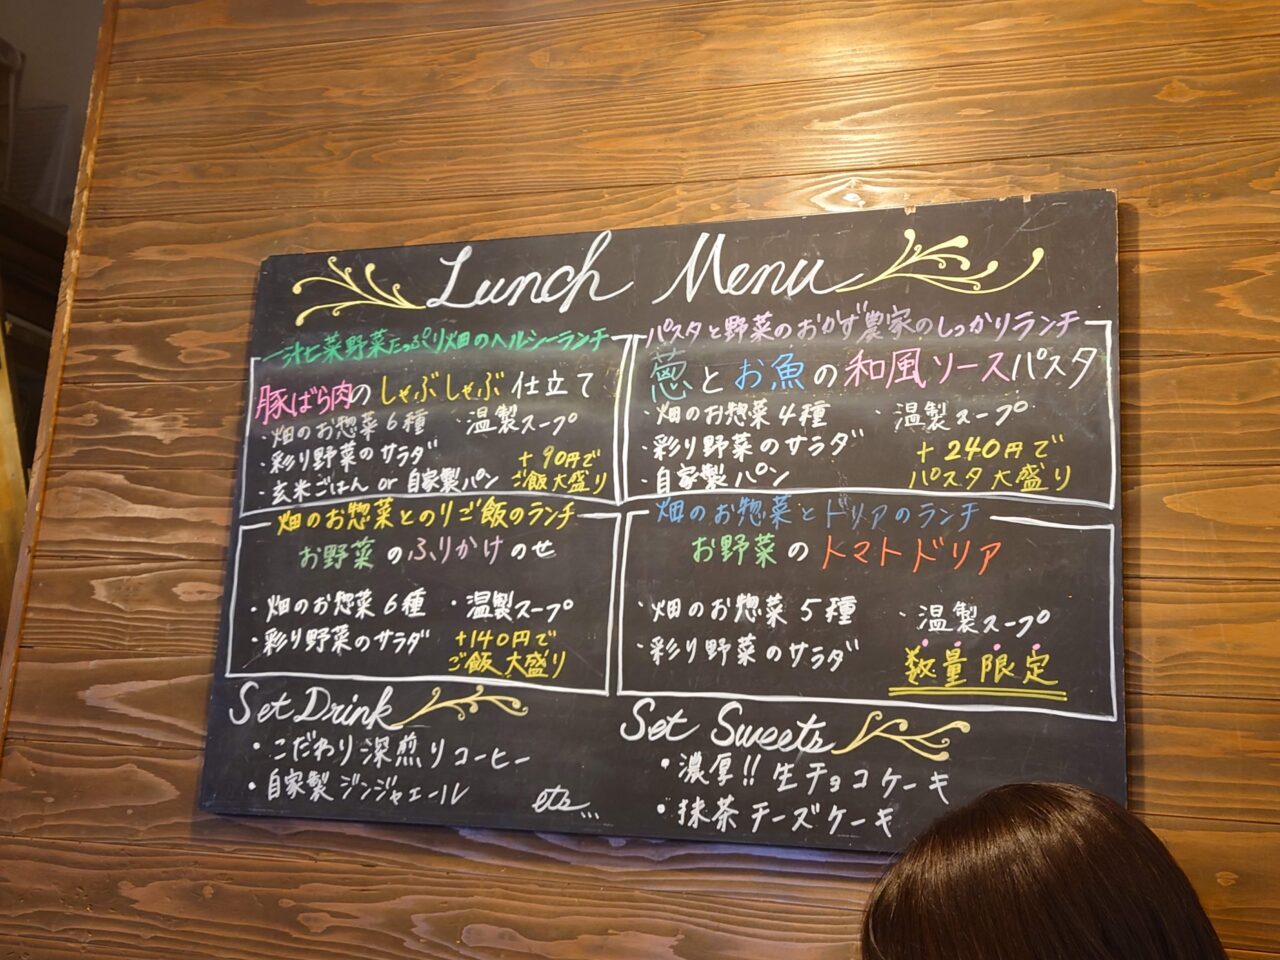 Lunch Menu
一汁七菜野菜たっぷり畑のヘルシーランチ
豚ばら肉のしゃぶしゃぶ仕立て
・畑のお惣菜6種 ・温製スープ
・彩り野菜のサラダ
・玄米ごはん or 自家製パン
+90円で
ご飯大盛り
パスタと野菜のおかず農家のしっかりランチ
葱とお魚の和風ソースパスタ
・畑のお惣菜4種 ・温製スープ
・彩り野菜のサラダ
・自家製パン
+240円で
パスタ大盛り
畑のお惣菜とのりご飯のランチ
お野菜のふりかけのせ
・畑のお惣菜6種 ・温製スープ
・彩り野菜のサラダ
+140円で
ご飯大盛り
畑のお惣菜とドリアのランチ
お野菜のトマトドリア
・畑のお惣菜5種 ・温製スープ
・彩り野菜のサラダ
数量限定
Set Drink
・こだわり深煎りコーヒー
・自家製ジンジャエール
etc...
Set Sweets
・濃厚!!生チョコケーキ
・抹茶チーズケーキ